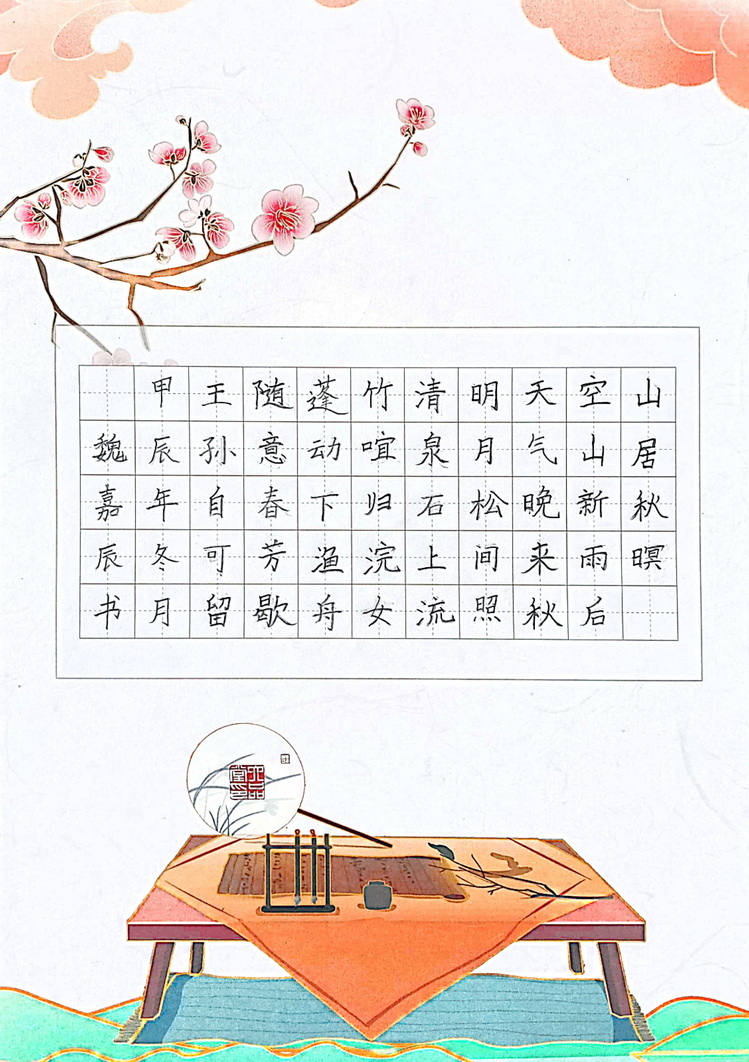 山居秋暝
空山新雨后
天气晚来秋
明月松间照
清泉石上流
竹喧归浣女
蓬动下渔舟
随意春芳歇
王孙自可留
甲辰年冬月
魏嘉辰书